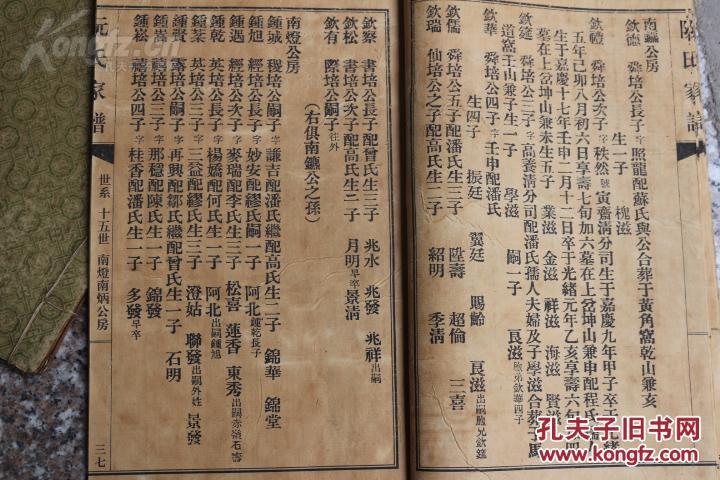 南鑣公房
欽德 舜培公長子字照龍配蘇氏與公合葬于黃角窩乾山兼亥
生一子 槐滋
欽禮 舜培公次子字秩然號寅齋清分司生于嘉慶九年甲子卒于光緒
五年己卯八月初六日享壽七旬加六墓在上岔坤山兼申配程氏
生于嘉慶十七年壬申二月十二日卒于光緒元年乙亥享壽六旬
墓在上岔坤山兼未生五子 業滋 金滋 祥滋 海滋 賢滋
欽筵 舜培公三子字高養清分司配潘氏孺人夫婦及子學滋合葬子馬
道窩壬山兼子生一子 學滋 嗣一子 艮滋胞弟欽華四子
欽華 舜培公四子字壬申配潘氏
生四子 振廷 翼廷 賜齡 艮滋出嗣胞兄欽筵
欽儒 舜培公五子配潘氏生三子 陞壽 超倫 三喜
欽瑞 仙培公之子配高氏生二子 紹明 季清
欽察 書培公長子配曾氏生三子 兆水 兆發 兆祥出嗣
欽松 書培公次子配高氏生二子 月明早卒景清
欽有 際培公嗣子往外
(右俱南鑣公之孫)
南燈公房
鍾城 稷培公嗣子字謙吉配潘氏繼配高氏生二子 錦華 錦堂
鍾旭 英培公長子字妙安配繆氏嗣一子 阿北鍾乾長子
鍾遇 經培公長子字麥瑞配李氏生三子 松喜 蓮香 東秀出嗣赤嶺石壽
鍾乾 英培公次子字楊嬌配何氏生一子 阿北出嗣鍾旭
鍾菜 英培公三子字三益配繆氏生三子 澄姑 聯發出嗣外姓 景發
鍾賣 憲培公嗣子字再興配鄒氏繼配曾氏生一子 石明
鍾嵩 禧培公三子字那穩配陳氏生一子 錦發
鍾崙 禧培公四子字桂香配潘氏生一子 多發早卒
阮氏家譜
世系 十五世 南燈南炳公房
三七
孔夫子旧书网
KONGFZ.COM